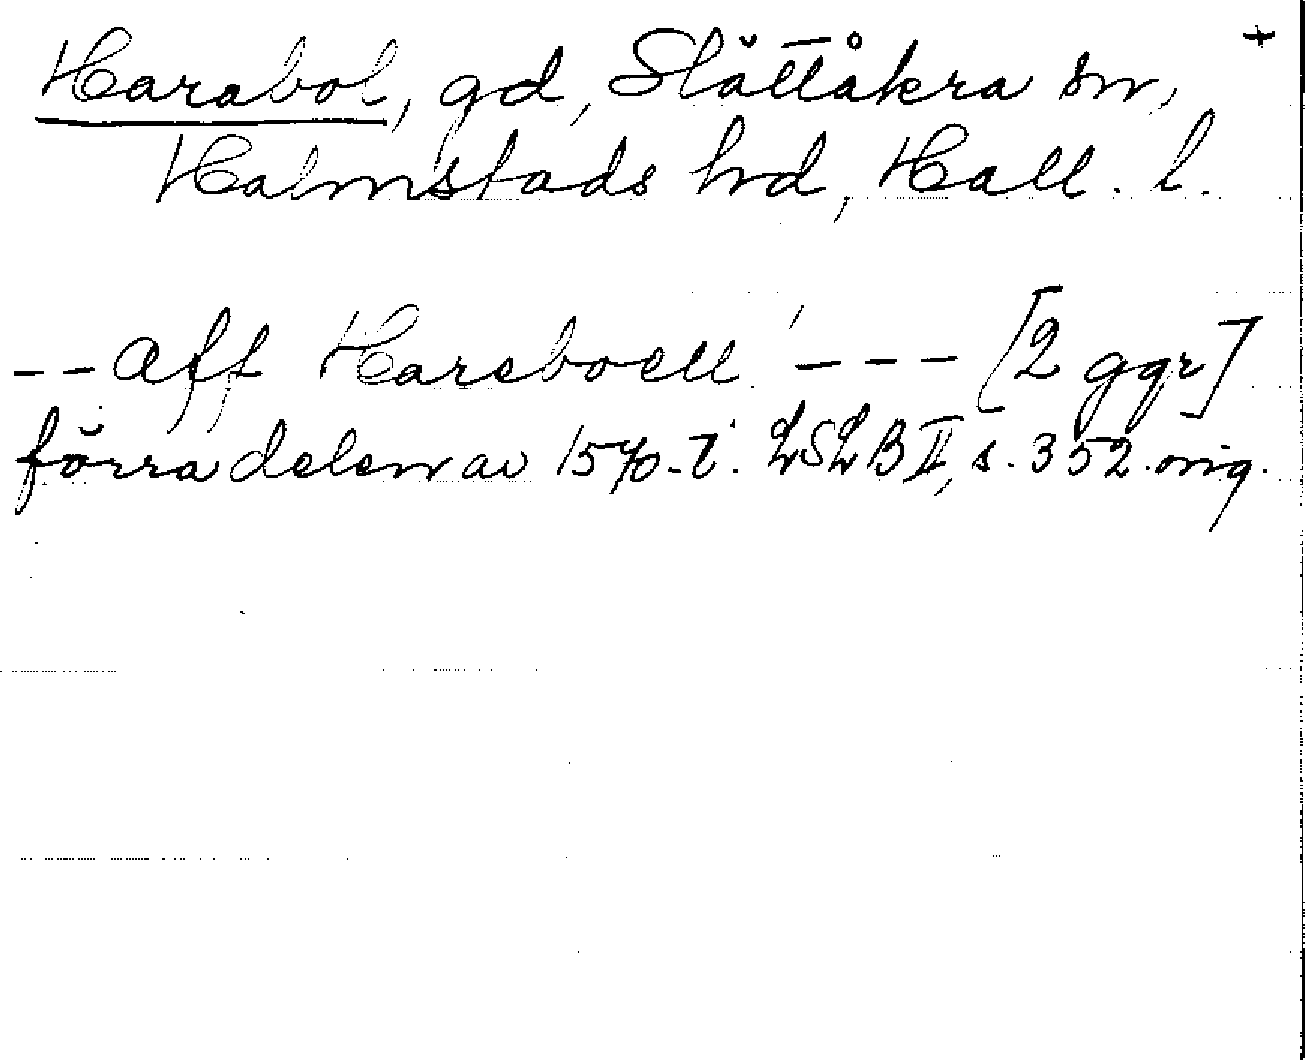 Harabol, gd, Slättåkra sn, +
Halmstads hrd, Hall. l.
-- aff Hareboell --- [2 ggr]
förra delen av 1570-t. LSLB II, s. 352. orig.